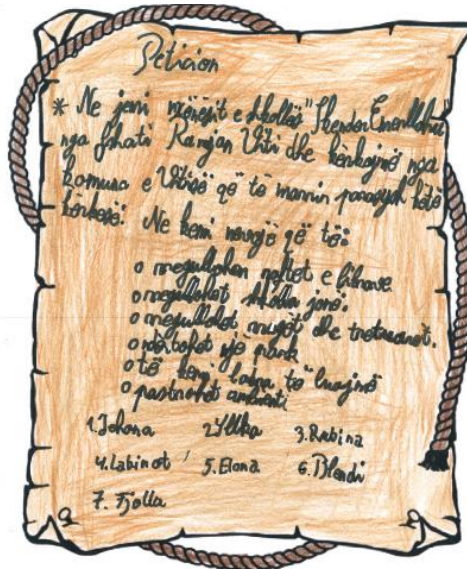 Peticion
* Ne jemi nxënësit e shkollës "Skender Emerllahu"
nga fshati Ramjan Viti dhe kërkojmë nga
komuna e Vitisë që të marrin parasysh këtë
kërkesë! Ne kemi nevojë që të:
o rregullohen
o rregullohet shkolla jonë.
o rregullohet rrugët dhe trotuaret.
o ndërtohet një park
o të kemi lodra, të luajmë
o pastrohet ambienti
1. Johana 2. Yllka 3. Rubina
4. Labinot 5. Elona 6. Blendi
7. Fjolla